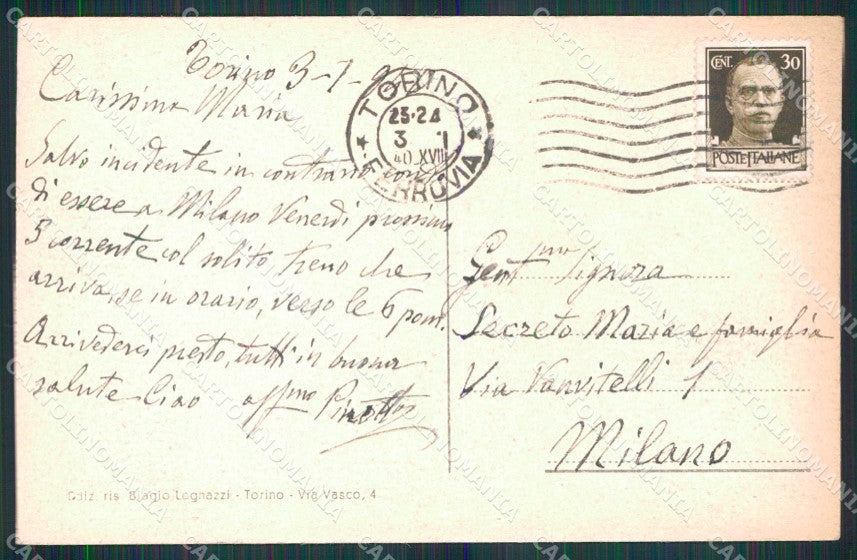 Torino 3-1-
Carissima Maria
Salvo incidente in contrario conto
di essere a Milano Venerdì prossimo
5 corrente col solito treno che
arriva, se in orario, verso le 6 pom.
Arrivederci presto, tutti in buona
salute Ciao affmo
TORINO
23-24
3 1
40 XVIII
FERROVIA
CENT. 30
POSTE ITALIANE
Gentma Signora
Secreto Maria e famiglia
Via Vanvitelli 1
Milano
Ediz. ris. Biagio Legnazzi - Torino - Via Vasco, 4
CARTOLINOMANIA